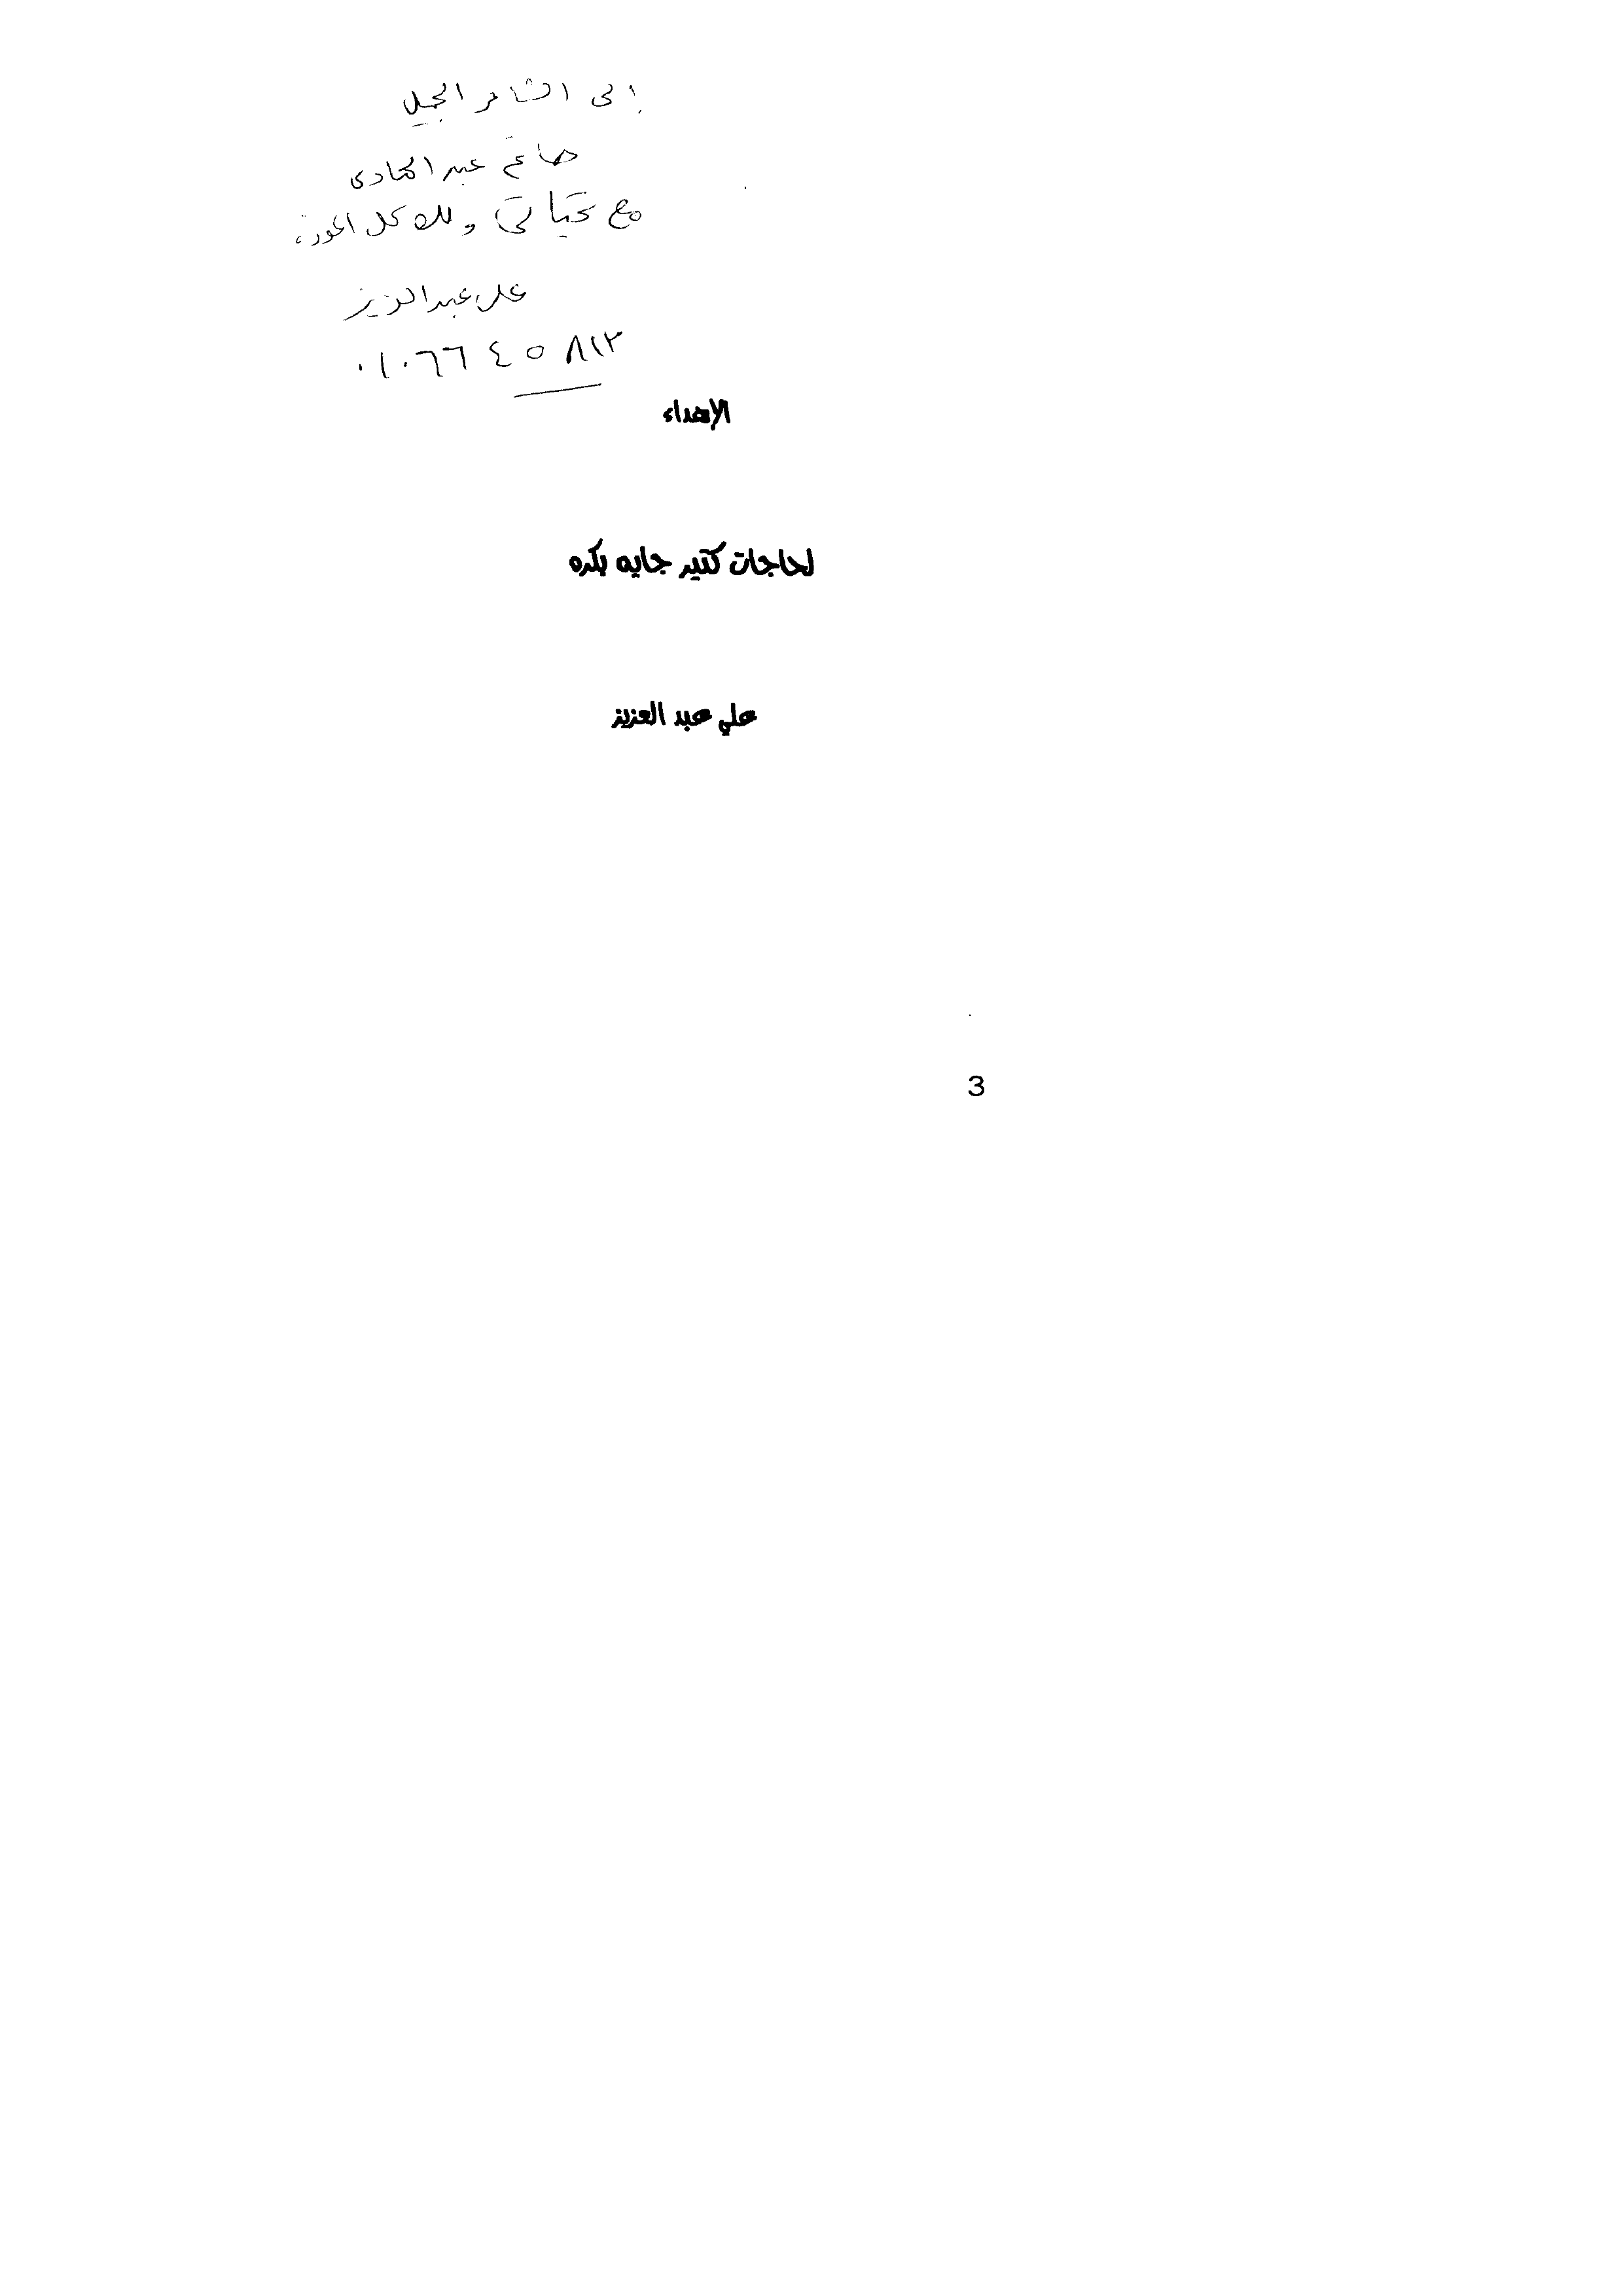 إلى الشاعر الجميل
حاتم عبد الهادى
مع تحياتى ولك كل المودة
على عبد العزيز
٠١٠٦٦٤٥٨١٢
الإهداء
لحاجات كتير جايه بكره
علي عبد العزيز
3